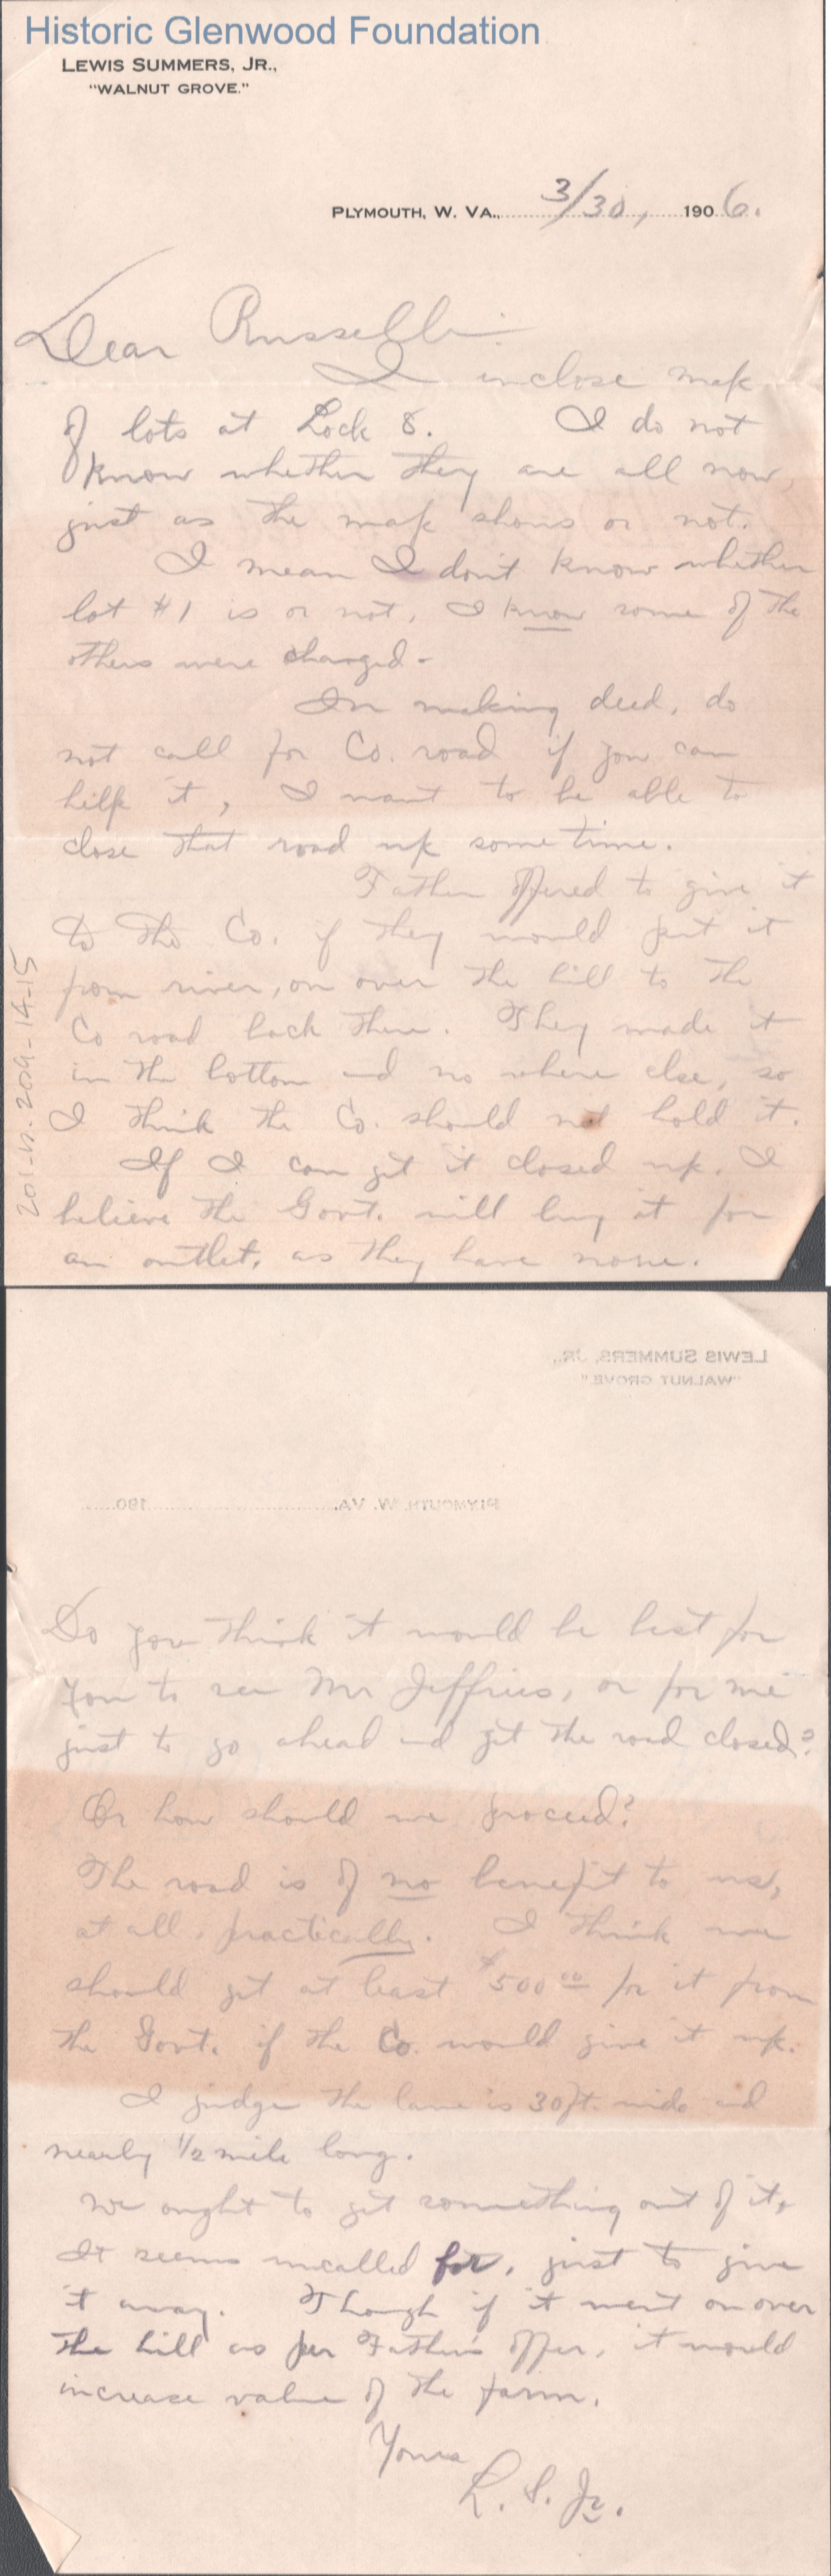 Historic Glenwood Foundation
LEWIS SUMMERS, JR.,
"WALNUT GROVE."
PLYMOUTH, W. VA., 3/30, 1906.
Dear Russell:
I inclose map
of lots at Lock 8. I do not
know whether they are all now,
just as the map shows or not.
I mean I don't know whether
lot #1 is or not, I know some of the
others were changed-
In making deed, do
not call for Co. road if you can
help it, I want to be able to
close that road up some time.
Father offered to give it
to the Co. if they would put it
from river, on over the hill to the
Co road back there. They made it
in the bottom and no where else, so
I think the Co. should not hold it.
If I can get it closed up, I
believe the Govt. will buy it for
an outlet, as they have none.
201-15-209-14-15
LEWIS SUMMERS, JR.,
"WALNUT GROVE."
PLYMOUTH, W. VA. 190
Do you think it would be best for
you to see Mr Jeffries, or for me
just to go ahead and get the road closed?
Or how should we proceed?
The road is of no benefit to us,
at all, practically. I think we
should get at least $500 00 for it from
the Govt. if the Co. would give it up.
I judge the lane is 30 ft. wide and
nearly 1/2 mile long.
We ought to get something out of it,
It seems uncalled for, just to give
it away. Though if it went on over
the hill as per Father's offer, it would
increase value of the farm.
Yours
L. S. Jr.